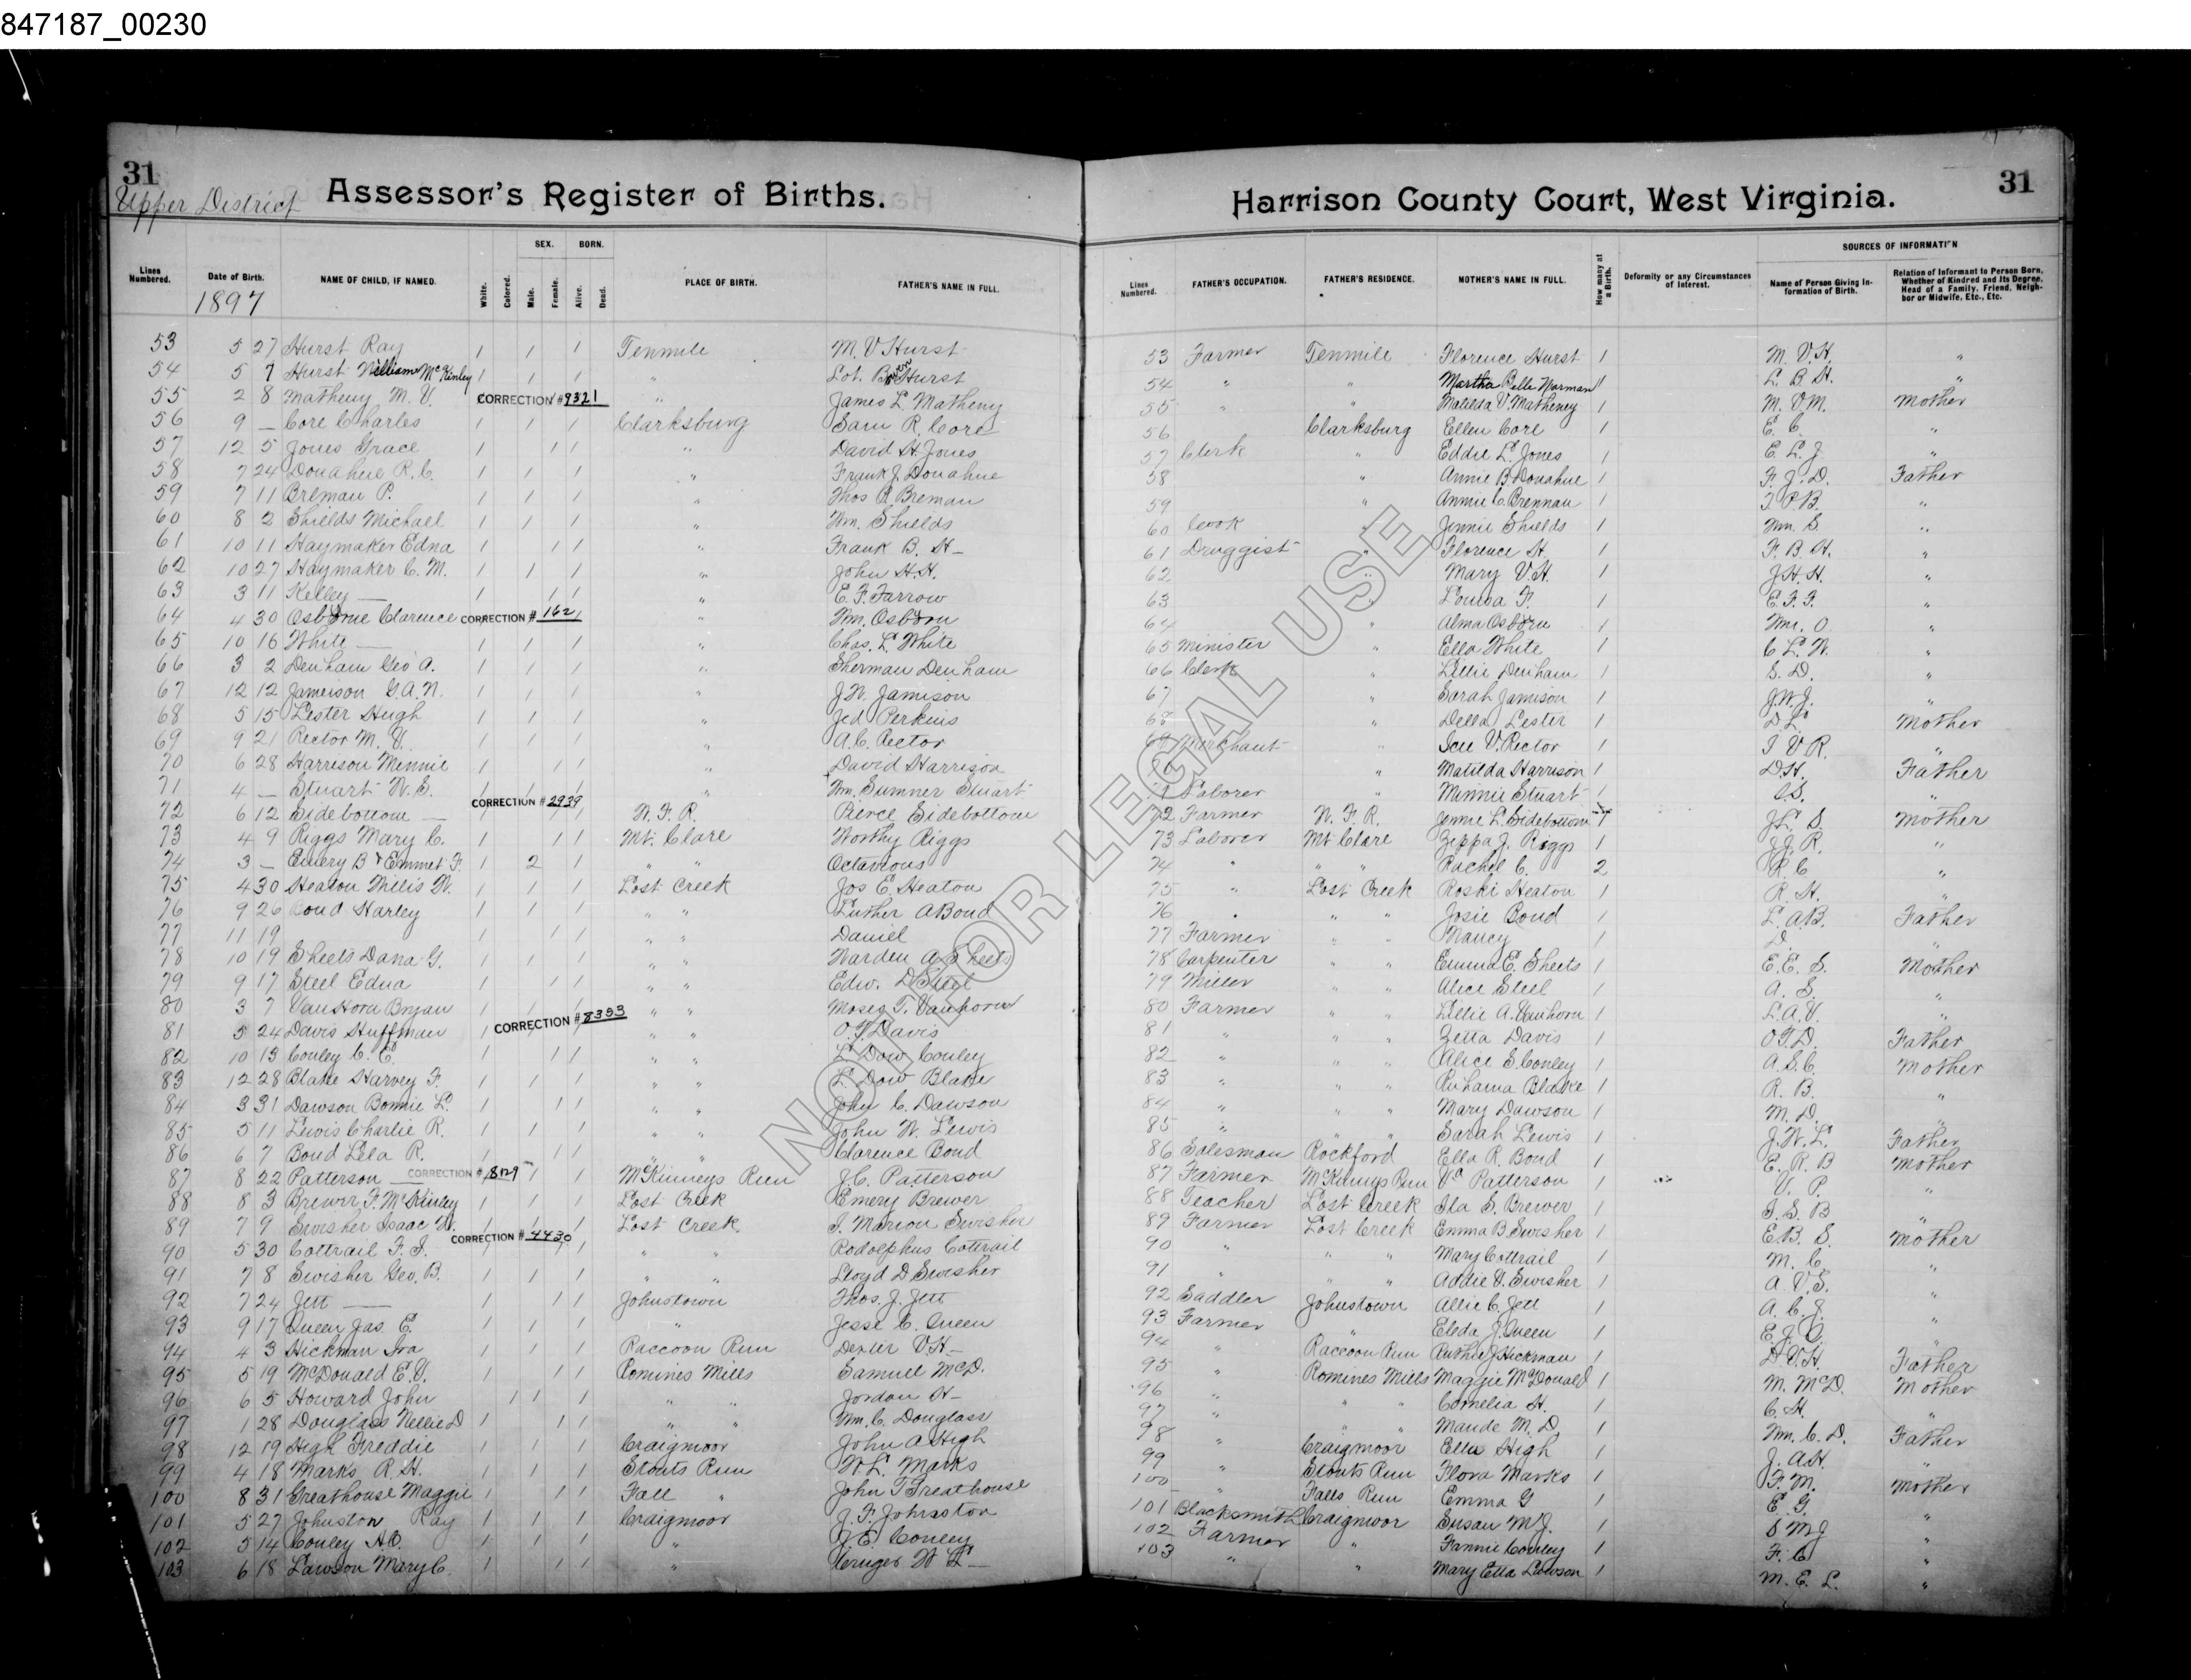 847187_00230
31
Upper District
Assessor's Register of Births.
Harrison County Court, West Virginia.
31
Lines Numbered. Date of Birth. NAME OF CHILD, IF NAMED. White. Colored. SEX. Male. Female. BORN. Alive. Dead. PLACE OF BIRTH. FATHER'S NAME IN FULL.
Lines Numbered. FATHER'S OCCUPATION. FATHER'S RESIDENCE. MOTHER'S NAME IN FULL. How many at a Birth. Deformity or any Circumstances of Interest. SOURCES OF INFORMATION Name of Person Giving Information of Birth. Relation of Informant to Person Born, Whether of Kindred and Its Degree, Head of a Family, Friend, Neighbor or Midwife, Etc., Etc.
1897
53 5 27 Hurst Ray 1 1 1 Tenmile M. V Hurst 53 Farmer Tenmile Florence Hurst 1 M. V. H. "
54 5 7 Hurst William McKinley 1 1 1 " Lot. Hurst 54 " " Martha Belle Norman 1 L. B. H. "
55 2 8 Matheny M. V. CORRECTION #9321 " James L. Matheny 55 " " Matilda V. Matheney 1 M. V. M. Mother
56 9 — Core Charles 1 1 1 Clarksburg Sam R. Core 56 Clarksburg Ellen Core 1 E. C. "
57 12 5 Jones Grace 1 1 1 " David H. Jones 57 Clerk " Eddie L. Jones 1 E. L. J. "
58 7 24 Donahue R. C. 1 1 1 " Frank J. Donahue 58 " Annie B. Donahue 1 F. J. D. Father
59 7 11 Breman P. 1 1 1 " Thos P. Breman 59 " Annie C. Brennan 1 T. P. B. "
60 8 2 Shields Michael 1 1 1 " Wm. Shields 60 Cook " Jennie Shields 1 Wm. S. "
61 10 11 Haymaker Edna 1 1 1 " Frank B. H— 61 Druggist " Florence H. 1 F. B. H. "
62 10 27 Haymaker C. M. 1 1 1 " John H. H. 62 " Mary V. H. 1 J. H. H. "
63 3 11 Kelley — 1 1 1 " E. F. Farrow 63 " Louisa F. 1 E. F. F. "
64 4 30 Osborne Clarence CORRECTION # 162 1 " Wm. Osborn 64 " Alma Osborn 1 Wm. O "
65 10 16 White — 1 1 1 " Chas. L. White 65 Minister " Ella White 1 C. L. W. "
66 3 2 Denham Geo A. 1 1 1 " Sherman Denham 66 Clerk " Lillie Denham 1 S. D. "
67 12 12 Jamerson G. A. N. 1 1 1 " J. W. Jamison 67 " Sarah Jamison 1 J. W. J. "
68 5 15 Lester Hugh 1 1 1 " Jed Perkins 68 " Della Lester 1 D. L. Mother
69 9 21 Rector M. V. 1 1 1 " A. C. Rector 69 Merchant " V. Rector 1 I V R. "
70 6 28 Harrison Minnie 1 1 1 " David Harrison 70 " Matilda Harrison 1 D. H. Father
71 4 — Stuart W. S. 1 1 1 " Wm. Sumner Stuart 71 Laborer " Minnie Stuart 1 S. S. "
72 6 12 Sidebottom — CORRECTION # 2939 W. F. R. Pierce Sidebottom 72 Farmer W. F. R. Jennie L. Sidebottom 1 J. L. S. Mother
73 4 9 Riggs Mary C. 1 1 1 Mt. Clare Worthy Riggs 73 Laborer Mt Clare Zeppa J. Riggs 1 J. J. R. "
74 3 — Emery B & Emmet F. 1 2 1 " " Octavious 74 " " " Rachel C. 2 R. C "
75 4 30 Heaton Willis W. 1 1 1 Lost Creek Jos E. Heaton 75 " Lost Creek Roski Heaton 1 R. H. "
76 9 26 Bond Harley 1 1 1 " " Luther A Bond 76 " " " Josie Bond 1 L. A. B. Father
77 11 19 1 1 1 " " Daniel 77 Farmer " " Nancy 1 D. "
78 10 19 Sheets Dana G. 1 1 1 " " Warden A Sheets 78 Carpenter " " Emma E. Sheets 1 E. E. S. Mother
79 9 17 Steel Edna 1 1 1 " " Edw. D Steel 79 Miller " " Alice Steel 1 A. S. "
80 3 7 VanHorn Bryan 1 1 1 " " Moses T. Vanhorn 80 Farmer " " Lillie A. Vanhorn 1 L. A. V. "
81 5 24 Davis Huffman 1 CORRECTION #8353 " " O. T. Davis 81 " " " Zetta Davis 1 O. T. D. Father
82 10 13 Conley C. E. 1 1 1 " " L. Dow Conley 82 " " " Alice S. Conley 1 A. S. C. Mother
83 12 28 Blake Harvey F. 1 1 1 " " L. Dow Blake 83 " " " Ruhama Blake 1 R. B. "
84 3 31 Dawson Bonnie L. 1 1 1 " " John C. Dawson 84 " " " Mary Dawson 1 M. D. "
85 5 11 Lewis Charlie R. 1 1 1 " " John W. Lewis 85 " " " Sarah Lewis 1 J. W. L. Father
86 6 7 Bond Lela R. 1 1 1 " " Clarence Bond 86 Salesman Rockford Ella R. Bond 1 E. R. B Mother
87 8 22 Patterson — CORRECTION # 8129 1 1 McKinneys Run J. C. Patterson 87 Farmer McKinneys Run Va Patterson 1 V. P. "
88 8 3 Brewer F. McKinley 1 1 1 Lost Creek Emery Brewer 88 Teacher Lost Creek Ila S. Brewer 1 I. S. B "
89 7 9 Swisher Isaac W. 1 1 1 Lost Creek. I. Marion Swisher 89 Farmer Lost Creek Emma B Swisher 1 E B. S. Mother
90 5 30 Cottrail F. S. CORRECTION # 4430 1 1 " " Rodolphus Cottrail 90 " " " Mary Cottrail 1 M. C. "
91 7 8 Swisher Geo. B. 1 1 1 " " Lloyd D Swisher 91 " " " Addie V. Swisher 1 A. V. S. "
92 7 24 Jett — 1 1 1 Johnstown Thos. J. Jett 92 Saddler Johnstown Allie C. Jett 1 A. C. J. "
93 9 17 Queen Jas E. 1 1 1 " Jesse C. Queen 93 Farmer " Eleda J. Queen 1 E. J. Q. "
94 4 3 Hickman Ira 1 1 1 Raccoon Run Dexter V. H— 94 " Raccoon Run Ruthie J Hickman 1 D V. H. Father
95 5 19 McDonald E. V. 1 1 1 Romines Mills Samuel McD. 95 " Romines Mills Maggie McDonald 1 M. McD. Mother
96 6 5 Howard John 1 1 1 " " Jordan H— 96 " " " Cornelia H. 1 C. H. "
97 1 28 Douglass Nellie D 1 1 1 " " Wm. C. Douglass 97 " " " Maude M. D. 1 Wm. C. D. Father
98 12 19 High Freddie 1 1 1 Craigmoor John A High 98 " Craigmoor Ella High 1 J. A H. "
99 4 18 Marks R. H. 1 1 1 Stouts Run W L. Marks 99 " Stouts Run Flora Marks 1 F. M. Mother
100 8 31 Greathouse Maggie 1 1 1 Fall " John T Greathouse 100 Falls Run Emma G 1 E. G. "
101 5 27 Johnston Ray 1 1 1 Craigmoor J. F. Johnston 101 Blacksmith Craigmoor Susan M J. 1 S M J "
102 5 14 Conley H. O. 1 1 1 " Conley 102 Farmer " Fannie Conley 1 F. C "
103 6 18 Lawson Mary C. 1 1 1 " Cruger W L— 103 " " Mary Etta Lawson 1 M. E. L. "
NOT FOR LEGAL USE